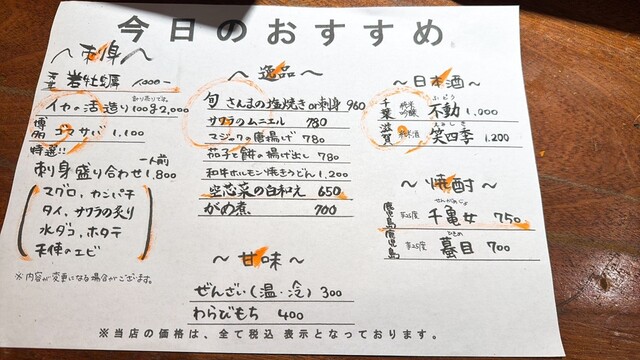 今日のおすすめ
～刺身～
岩牡蠣 1,000-
釣り売りです。
イカの活造り100g2,000
博多ゴマサバ 1,100
特選!!
刺身盛り合わせ 一人前 1,800
マグロ、カンパチ
タイ、サワラの炙り
水ダコ、ホタテ
天使のエビ
※内容が変更になる場合がございます。
～逸品～
旬 さんまの塩焼きor刺身 960
サワラのムニエル 780
マジックの唐揚げ 780
茄子と餅の揚げ出し 780
和牛ホルモン焼きうどん 1,200
空芯菜の白和え 650
がめ煮 700
～甘味～
ぜんざい(温・冷) 300
わらびもち 400
～日本酒～
千葉 純米吟醸 不動 ふどう 1,000
滋賀 純米酒 笑四季 えみしき 1,200
～焼酎～
鹿児島 芋25度 千亀女 せんがめじょ 750
鹿児島 芋25度 蟇目 ひきめ 700
※当店の価格は、全て税込 表示となっております。